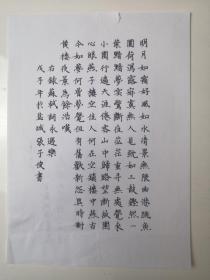 明月如霜好風如水清景無限曲港跳魚
圓荷瀉露寂寞無人見紞如三鼓鏗然一
葉黯黯夢雲驚斷夜茫茫重尋無處覺來
小園行遍天涯倦客山中歸路望斷故園
心眼燕子樓空佳人何在空鎖樓中燕古
今如夢何曾夢覺但有舊歡新怨異時對
黃樓夜景為餘浩嘆
右錄蘇軾詞永遇樂
戊子年於鹽城張子俊書